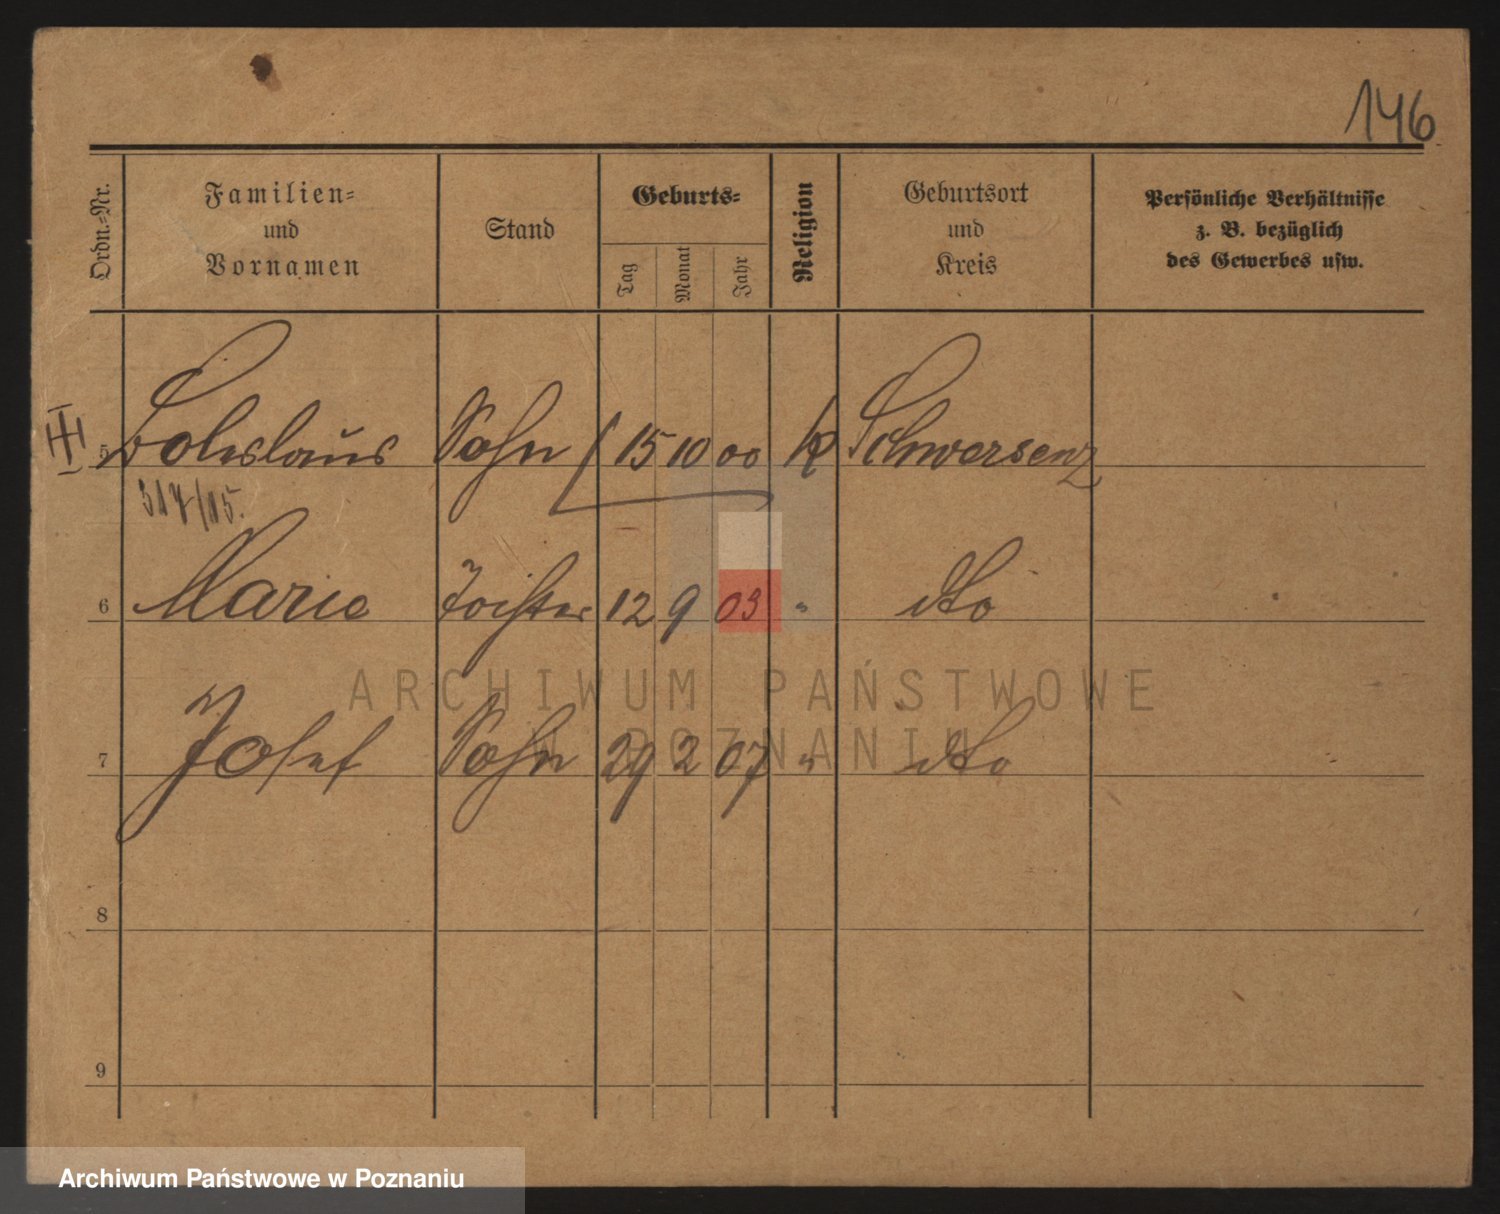 146
Ordn.-Nr.
Familien- und Vornamen
Stand
Geburts-
Tag Monat Jahr
Religion
Geburtsort und Kreis
Persönliche Verhältnisse
z. B. bezüglich
des Gewerbes usw.
III 5 Boleslaus Sohn 15 10 00 k Schwersenz
317/15.
6 Marie Tochter 12 9 03 " dto
ARCHIWUM PAŃSTWOWE
W POZNANIU
7 Josef Sohn 29 2 07 " dto
8
9
Archiwum Państwowe w Poznaniu